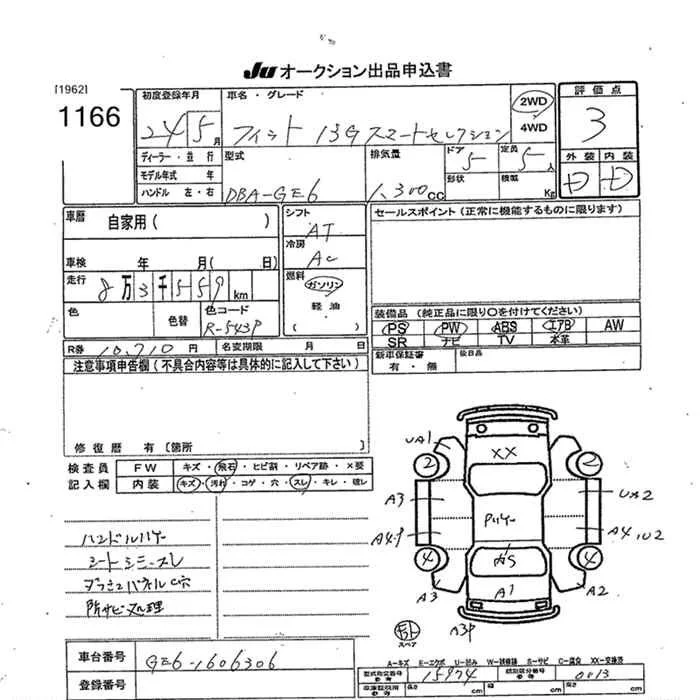 JU オークション出品申込書
[1962]
1166
初度登録年月
24 5 月
車名・グレード
フィット 13G スマートセレクション
2WD
4WD
評価点
3
外装 内装
D D
ディーラー・並行
モデル年式 年
ハンドル 左・右
型式
DBA-GE6
排気量
1,300 CC
ドア
5
定員
5 人
形状
積載
Kg
車歴
自家用( )
車検 年 月( 日)
走行
8 万 3 千 5 5 9 km
色
色替
色コード
R-543P
シフト
AT
冷房
AC
燃料
ガソリン
軽油
( )
セールスポイント(正常に機能するものに限ります)
装備品(純正品に限り○を付けてください)
PS PW ABS エアB AW
SR ナビ TV 本革
新車保証書
有・無
後日品
R券 10,710 円 名変期限 月 日
注意事項申告欄(不具合内容等は具体的に記入して下さい)
修復歴 有〔箇所
検査員
記入欄
FW キズ・飛石・ヒビ割・リペア跡・×要
内装 キズ・汚れ・コゲ・穴・スレ・キレ・破レ
シートシミ・スレ
防サビ処理
UA1
XX
2 2
A3
UA2
A4
A4 U2
4 4
A3
A1
A2
スペア
A3P
A-キズ E-エクボ U-凹み W-補修跡 S-サビ C-腐食 XX-交換済
車台番号
GE6-1606306
登録番号
型式指定番号
15974
類別区分番号
0013
長さ cm
cm
高さ cm